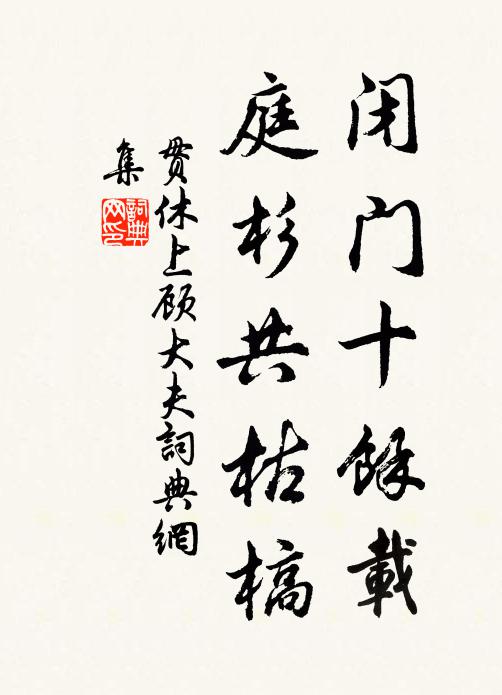 闭门十餘載
庭杉共枯槁
贯休上顾大夫詞典網
集
詞典
网印